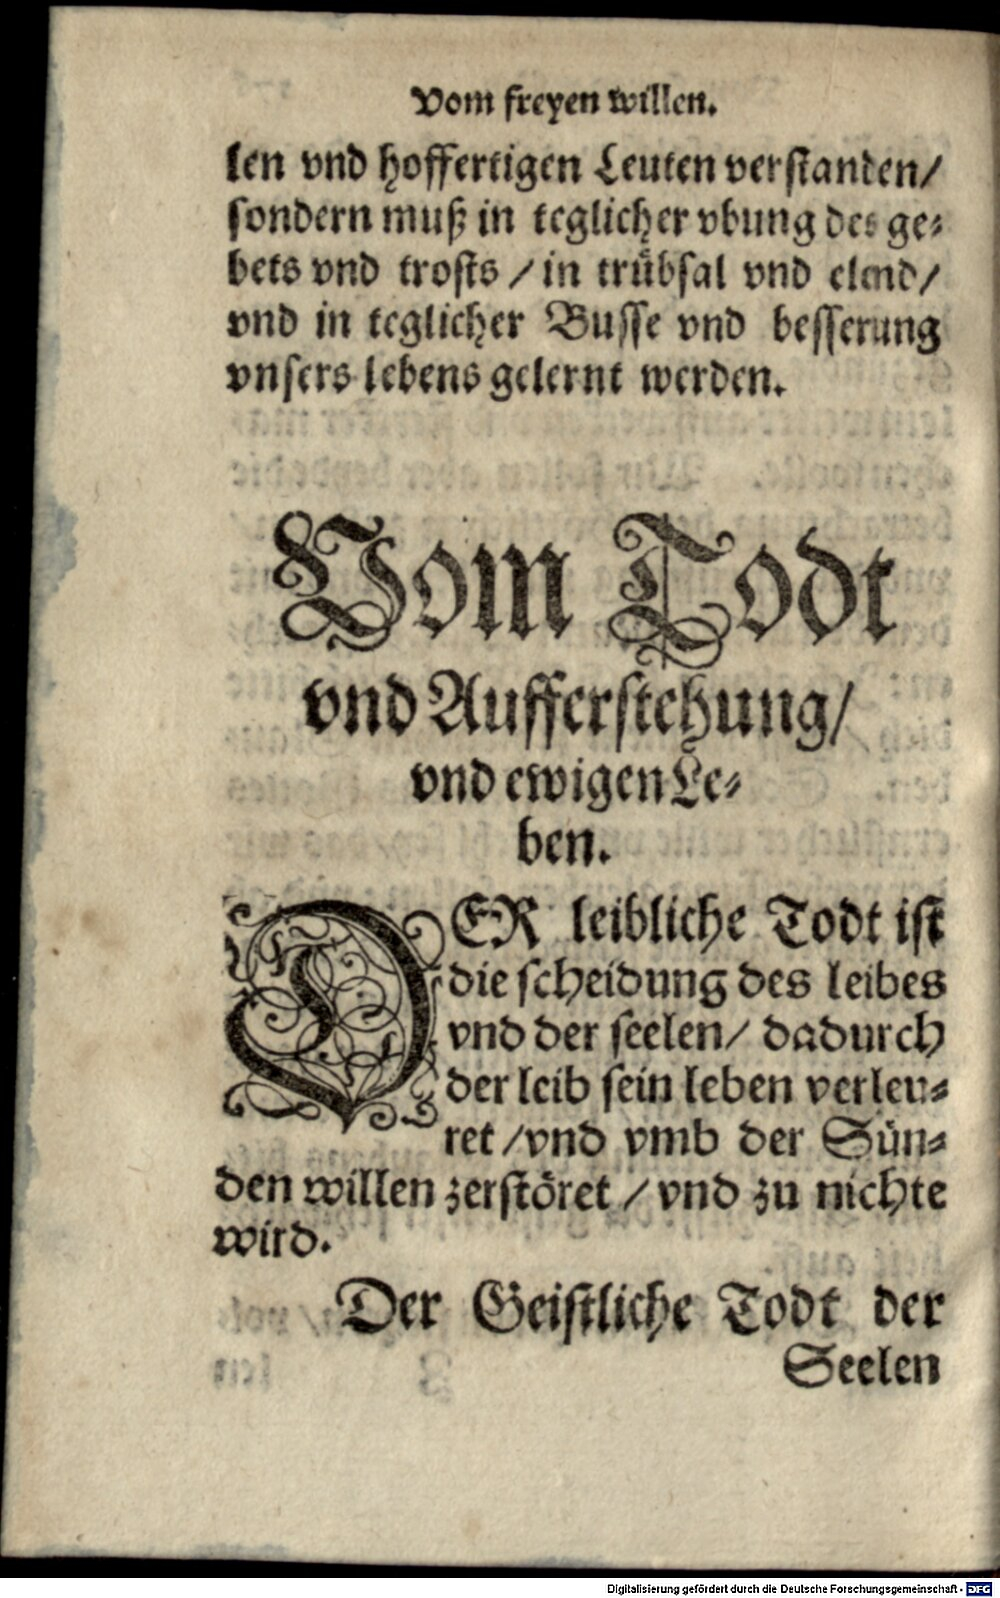 Vom freyen willen.
len vnd hoffertigen Leuten verstanden/
sondern muß in teglicher vbung des ge-
bets vnd trosts / in trübsal vnd elend/
vnd in teglicher Busse vnd besserung
vnsers lebens gelernt werden.
Vom Todt
vnd Aufferstehung/
vnd ewigen Le-
ben.
DER leibliche Todt ist
die scheidung des leibes
vnd der seelen/ dadurch
der leib sein leben verleu-
ret /vnd vmb der Sün-
den willen zerstöret / vnd zu nichte
wird.
Der Geistliche Todt der
Seelen
Digitalisierung gefördert durch die Deutsche Forschungsgemeinschaft - DFG